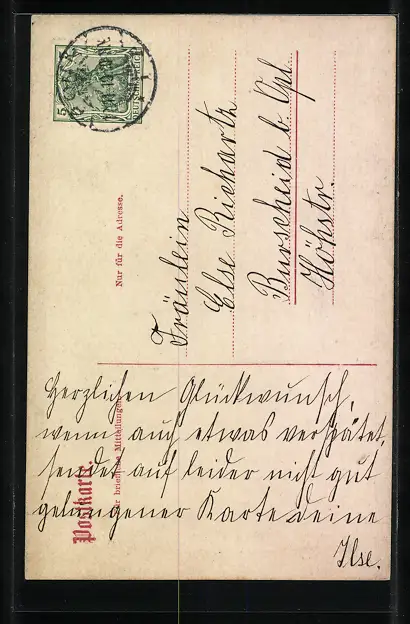 Postkarte
Für briefliche Mitteilungen.
Nur für die Adresse.
5
Fräulein
Else Richartz
Burscheid b Opl.
Höhstr.
Herzlichen Glückwunsch,
wenn auch etwas verspätet,
sendet auf leider nicht gut
gelungener Karte deine
Ilse.